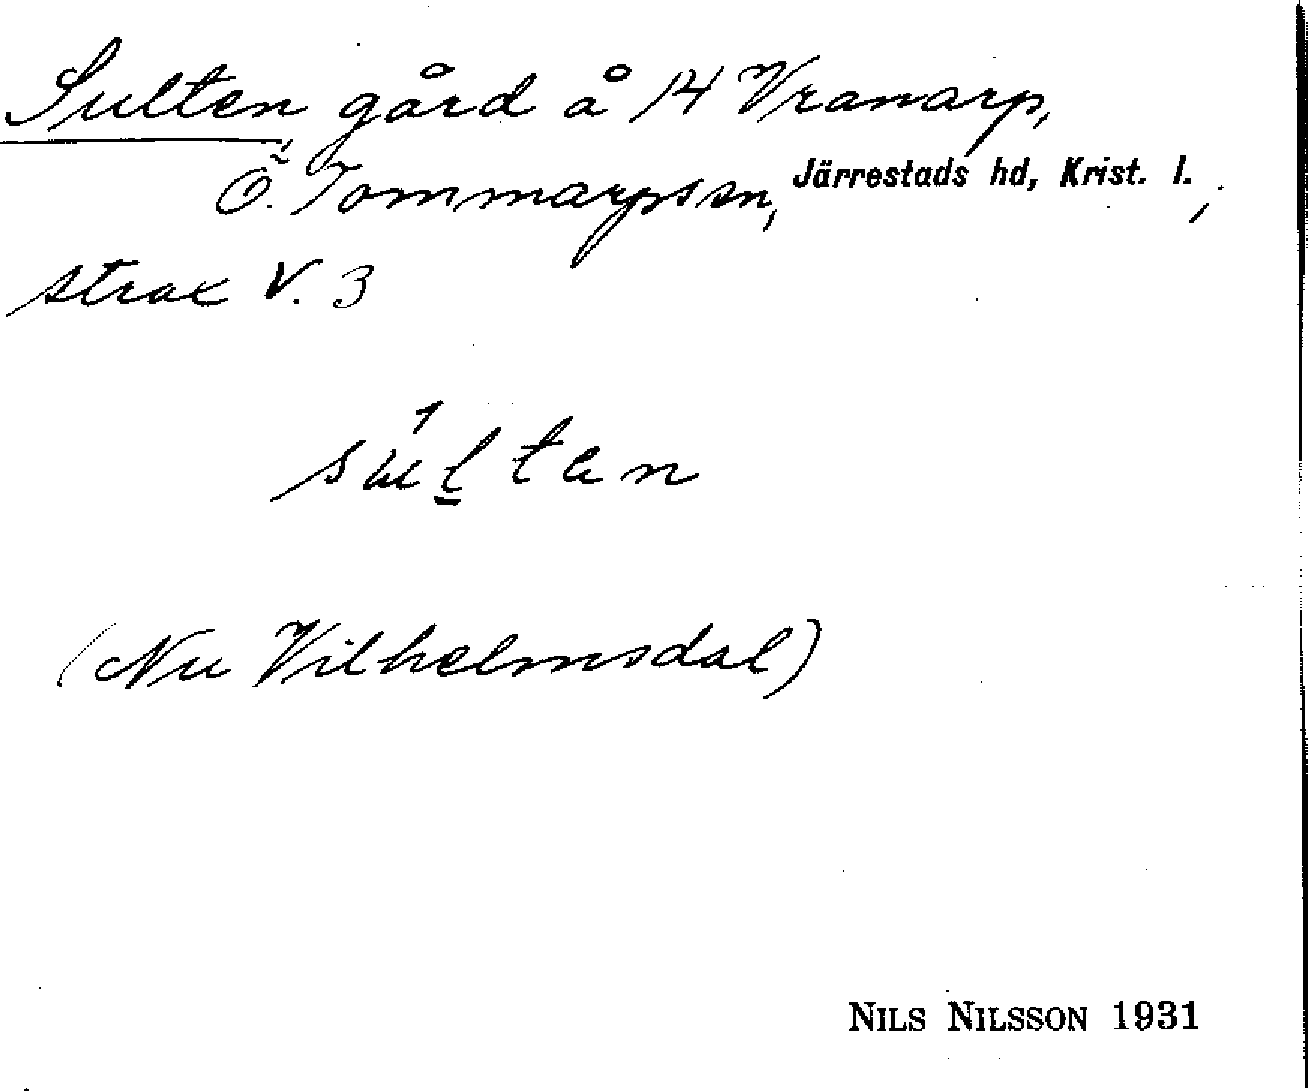 Sulten gård å 14 Vranarp,
Ö. Tommarpssn, Järrestads hd, Krist. l.,
strax V. 3
súltan
(Nu Vilhelmsdal)
NILS NILSSON 1931